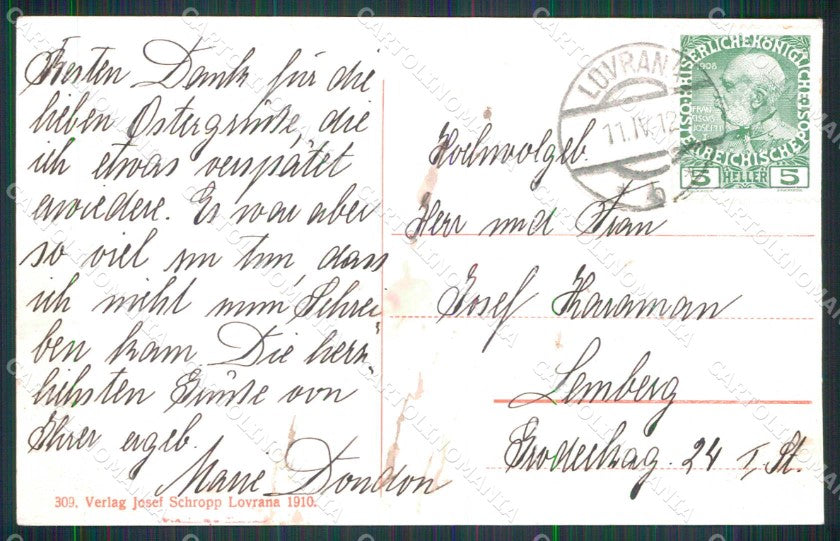 Besten Dank für die
lieben Ostergrüße, die
ich etwas verspätet
erwiedere. Es war aber
so viel zu tun, dass
ich nicht zum Schrei-
ben kam. Die herz-
lichsten Grüße von
Ihrer ergeb.
Marie Dondon
309, Verlag Josef Schropp Lovrana 1910.
LOVRANA
11.IV.12
* b *
KAISERLICHE KÖNIGLICHE ÖSTERREICHISCHE
1908
FRANZ
JOSEF I
5 HELLER 5
Hochwolgeb.
Herr und Frau
Josef Karaman
Lemberg
24 I. St.
CARTOLINOMANIA